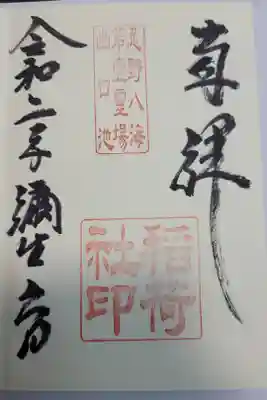 奉拝
忍野八海
第壹霊場
出口池
稲荷
社印
令和二年彌生